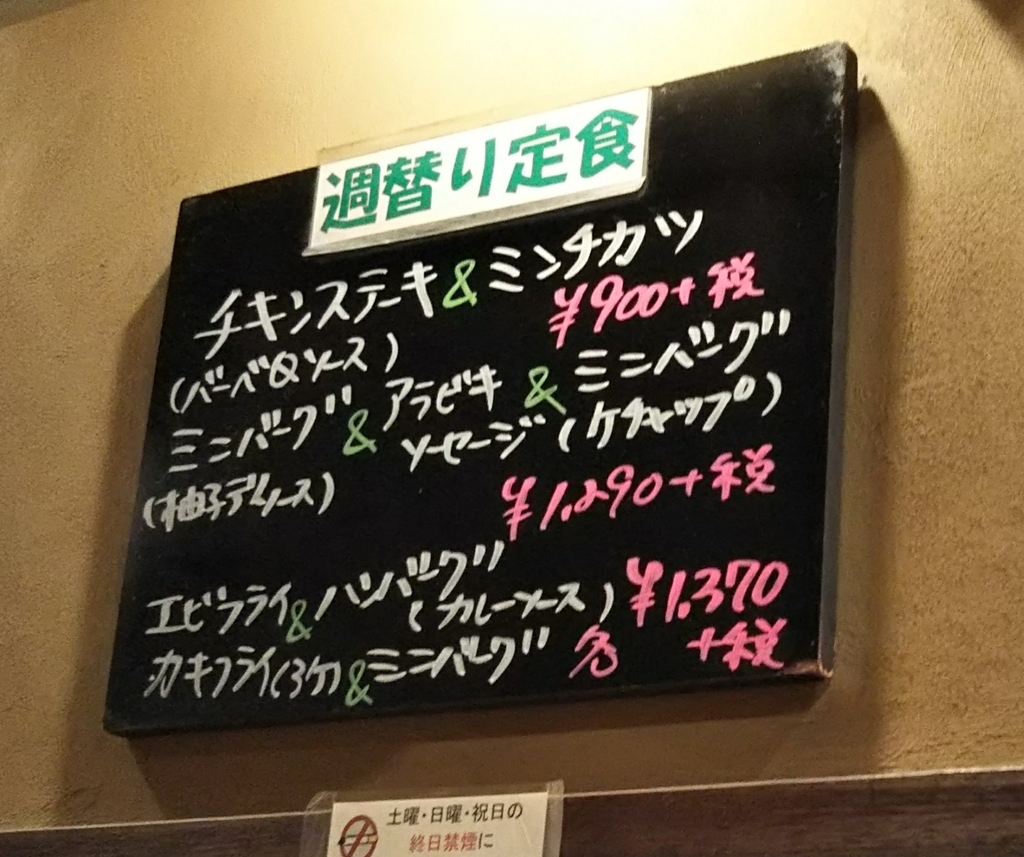 週替り定食
チキンステーキ&ミンチカツ
(バーベQソース) ¥900+税
ミニバーグ&アラビキ&ミニバーグ
ソーセージ(ケチャップ)
(柚子デミソース) ¥1.290+税
エビフライ&ハンバーグ
(カレーソース) ¥1.370
カキフライ(3ケ)&ミニバーグ 各 +税
土曜・日曜・祝日の
終日禁煙に